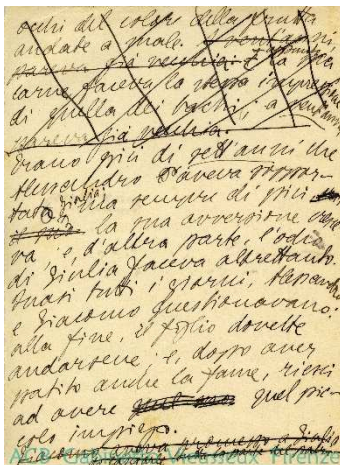 occhi del colore della frutta
andate a male.
pareva già vecchia. E la sua
carne faceva la stessa impressione
di quella dei bachi; a
pareva già vecchia.
Erano più di sett'anni che
Alessandro l'aveva soppor-
tata, Giulia ma sempre di più
la sua avversione cresce
va; e, d'altra parte, l'odio
di Giulia faceva altrettanto.
Quasi tutti i giorni, Alessandro
e Giacomo questionavano:
alla fine, il figlio dovette
andarsene; e, dopo aver
patito anche la fame, riescì
ad avere quel pic-
colo impiego.
ACGV Gabinetto Vieusseux Firenze